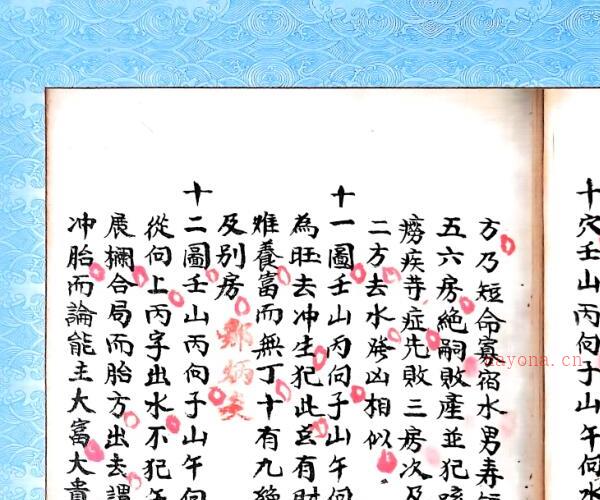 十穴壬山丙向子山午向水
方乃短命寡宿水男寿
五六房絶嗣敗產並犯咳
癆疾䓁症先敗三房次及
二方去水發凶相似
十一圖壬山丙向子山午向
為旺去冲生犯此㐫有財
难養富而無丁十有九絶
及别房
鄭炳炎
十二圖壬山丙向子山午向
從向上丙字出水不犯午
展欄合局而胎方出去謂
冲胎而論能主大富大貴
nayona.cn